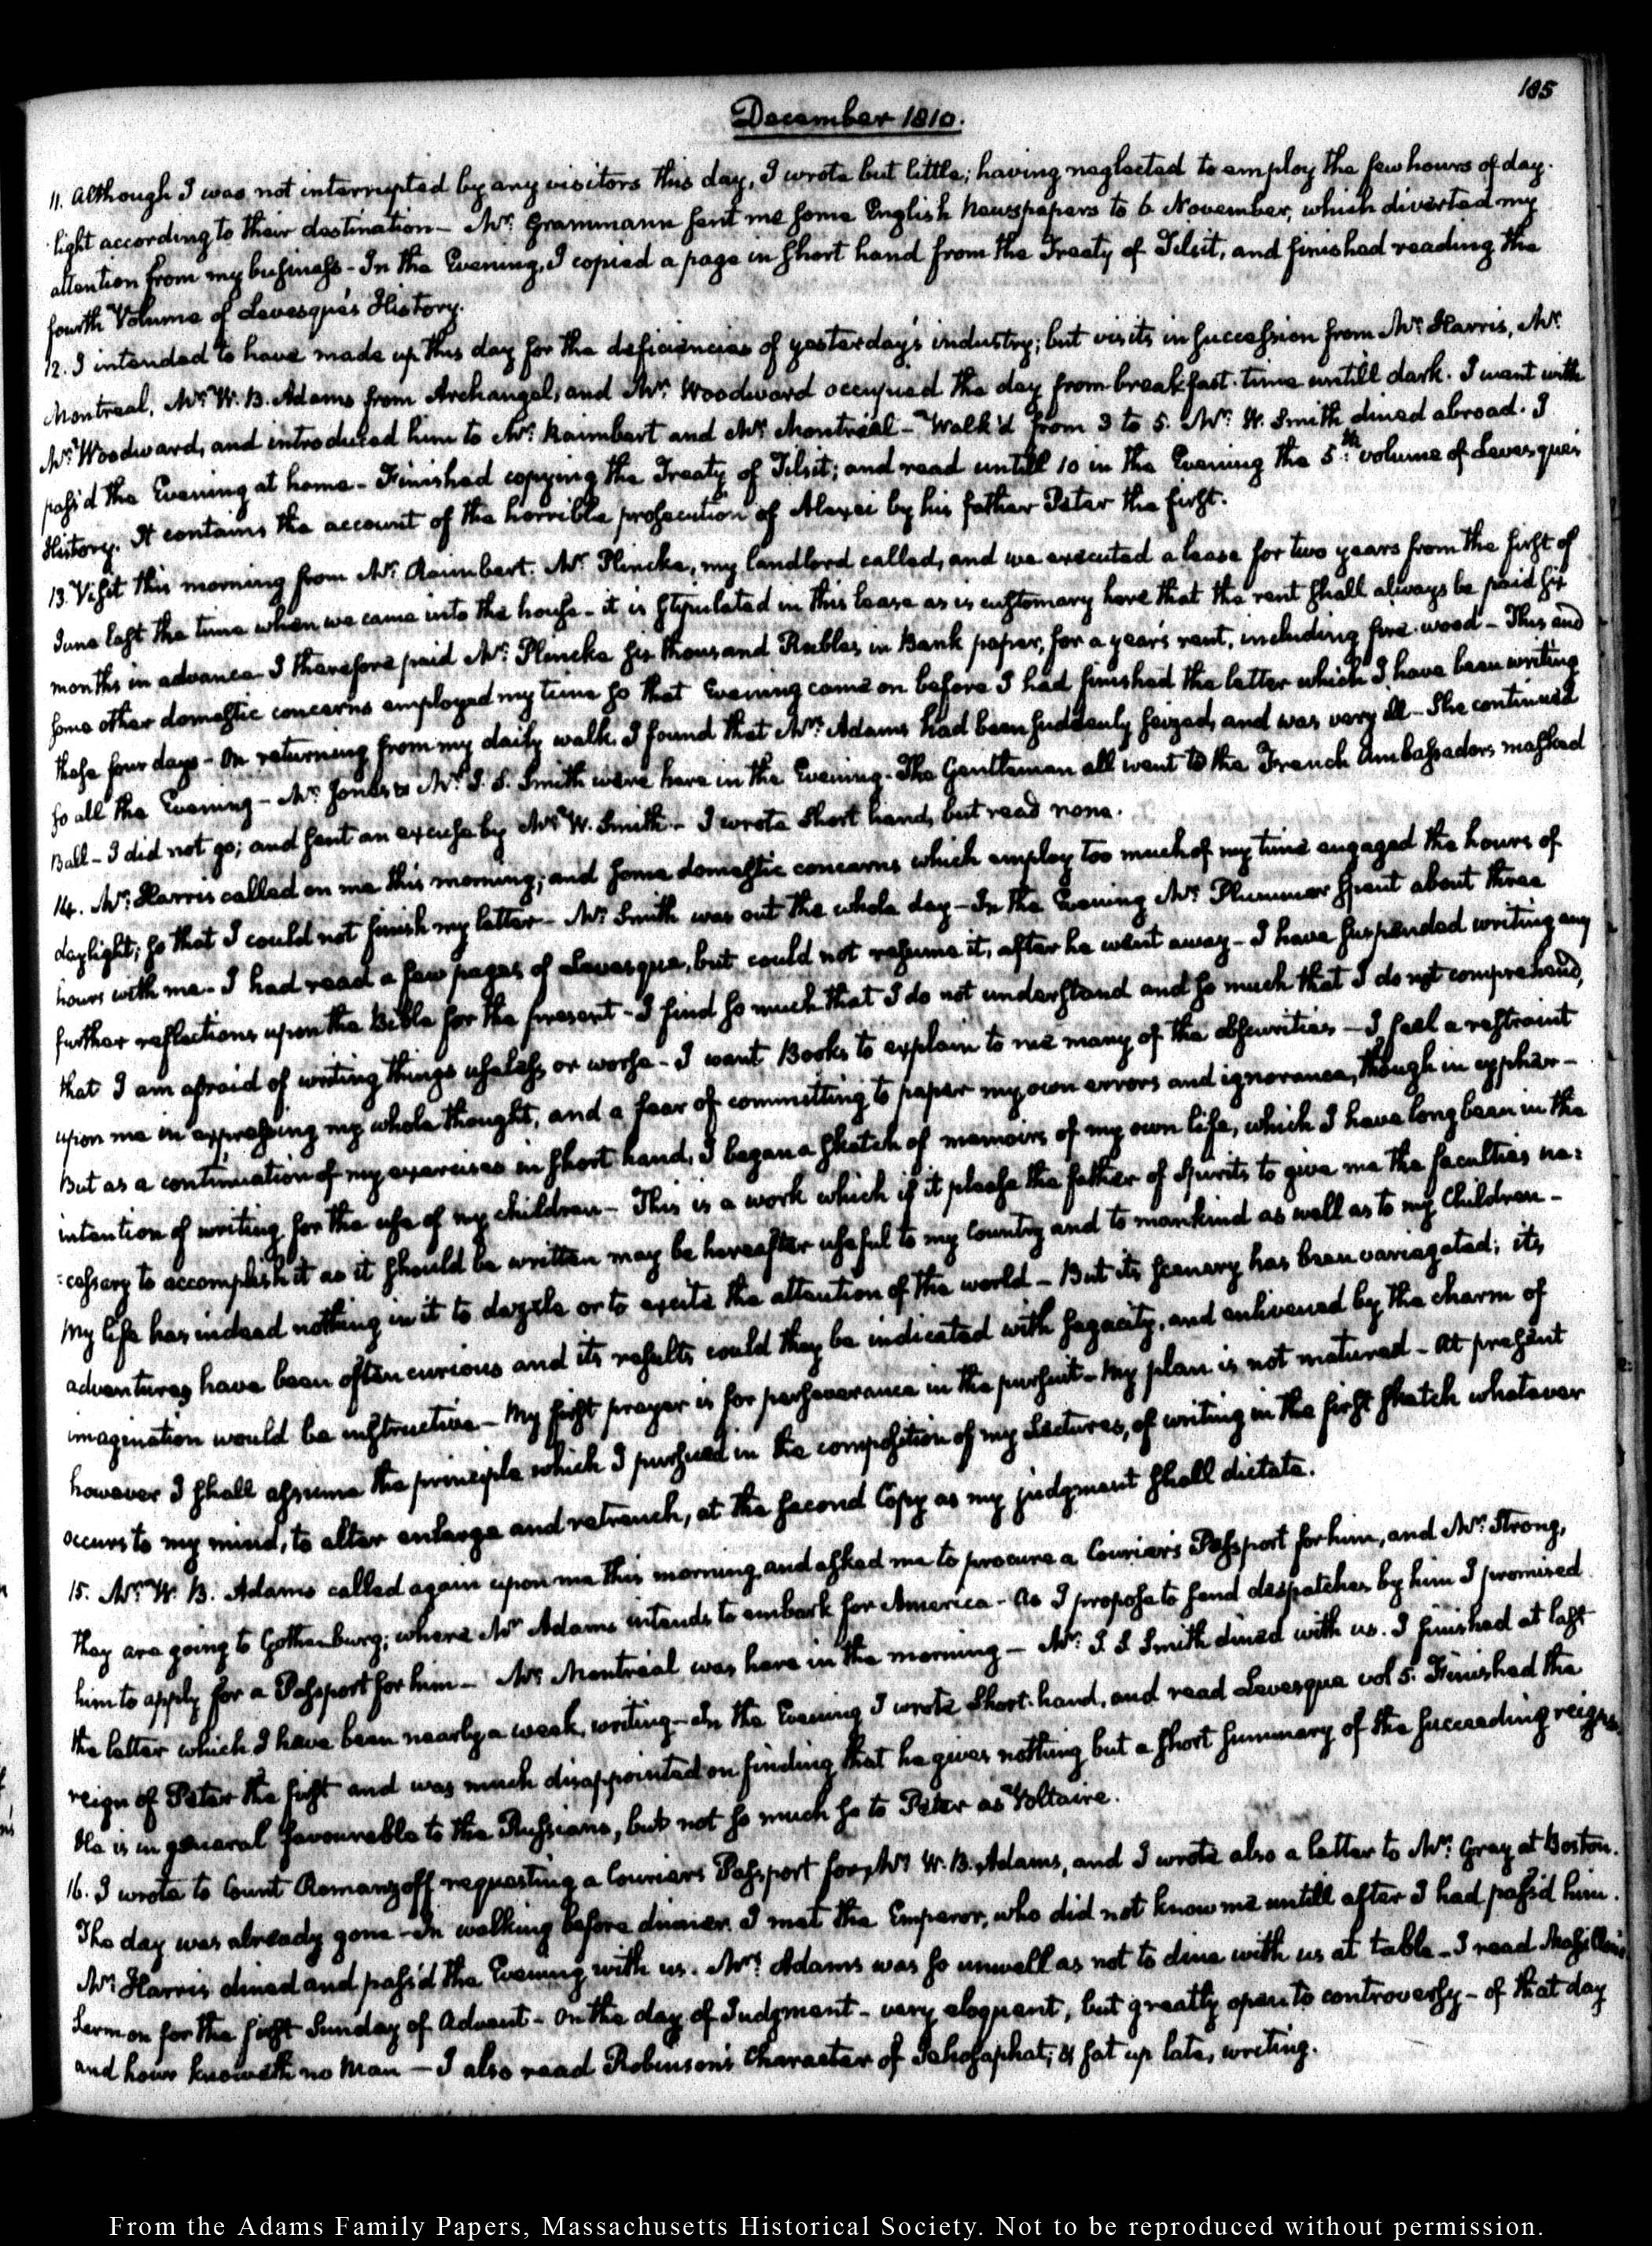 185
December 1810.
11. Although I was not interrupted by any visitors this day, I wrote but little; having neglected to employ the few hours of day-
light according to their destination – Mr. Grammann sent me some English Newspapers to 6 November, which diverted my
attention from my business – In the Evening, I copied a page in short hand from the Treaty of Tilsit, and finished reading the
fourth Volume of Levesque's History.
12. I intended to have made up this day for the deficiencies of yesterday's industry; but visits in succession from Mr. Harris, Mr.
Montreal, Mr. W. B. Adams from Archangel, and Mr. Woodward occupied the day from breakfast-time untill dark. I went with
Mr. Woodward, and introduced him to Mr. Raimbert and Mr. Montréal – Walk'd from 3 to 5. Mr. W. Smith dined abroad. I
pass'd the Evening at home – Finished copying the Treaty of Tilsit; and read untill 10 in the Evening the 5th. volume of Levesque's
History. It contains the account of the horrible prosecution of Alexei by his father Peter the first.
13. Visit this morning from Mr. Raimbert. Mr. Plincke, my landlord called, and we executed a lease for two years from the first of
June last the time when we came into the house – it is stipulated in this lease as is customary here that the rent shall always be paid six
months in advance I therefore paid Mr. Plincke six thousand Rubles, in Bank paper, for a year's rent, including fire-wood – This and
some other domestic concerns employed my time so that Evening came on before I had finished the letter which I have been writing
these four days – On returning from my daily walk, I found that Mrs. Adams had been suddenly seized, and was very ill – She continued
so all the Evening – Mr. Jones & Mr. J. S. Smith were here in the Evening. The Gentlemen all went to the French Ambassadors masked
Ball – I did not go; and sent an excuse by Mr. W. Smith – I wrote Short hand, but read none.
14. Mr. Harris called on me this morning; and some domestic concerns which employ too much of my time engaged the hours of
daylight; so that I could not finish my letter – Mr. Smith was out the whole day – In the Evening Mr. Plummer spent about three
hours with me – I had read a few pages of Levesque, but could not resume it, after he went away – I have suspended writing any
further reflections upon the Bible for the present – I find so much that I do not understand and so much that I do not comprehend,
that I am afraid of writing things useless or worse – I want Books to explain to me many of the obscurities – I feel a restraint
upon me in expressing my whole thought, and a fear of committing to paper my own errors and ignorance, though in cypher –
But as a continuation of my exercises in short hand, I began a sketch of memoirs of my own life, which I have long been in the
intention of writing for the use of my children – This is a work which if it please the father of Spirits to give me the faculties ne=
=cessary to accomplish it as it should be written may be hereafter useful to my Country and to mankind as well as to my Children –
My life has indeed nothing in it to dazzle or to excite the attention of the world – But its scenery has been variegated; its
adventures have been often curious and its results could they be indicated with sagacity, and enlivened by the charm of
imagination would be instructive – My first prayer is for perseverance in the pursuit – My plan is not matured – At present
however I shall assume the principle which I pursued in the composition of my Lectures, of writing in the first sketch whatever
occurs to my mind, to alter enlarge and retrench, at the second Copy as my judgment shall dictate.
15. Mr. W. B. Adams called again upon me this morning and asked me to procure a Courier's Passport for him, and Mr. Strong,
they are going to Gothenburg; where Mr Adams intends to embark for America – As I propose to send despatches by him I promised
him to apply for a Passport for him – Mr. Montréal was here in the morning – Mr. J. S Smith dined with us. I finished at last
the letter which I have been nearly a week, writing – In the Evening I wrote Short-hand, and read Levesque vol 5. Finished the
reign of Peter the first and was much disappointed on finding that he gives nothing but a short summary of the succeeding reigns.
He is in general favourable to the Russians, but not so much so to Peter as Voltaire.
16. I wrote to Count Romanzoff requesting a Couriers Passport for Mr. W. B. Adams, and I wrote also a letter to Mr. Gray at Boston.
The day was already gone – In walking before dinner, I met the Emperor, who did not know me untill after I had pass'd him.
Mr. Harris dined and pass'd the Evening with us. Mrs. Adams was so unwell as not to dine with us at table – I read Massillon's
Sermon for the first Sunday of Advent – On the day of Judgment – very eloquent, but greatly open to controversy – of that day
and hour knoweth no Man – I also read Robinson's Character of Jehosaphat; & sat up late, writing.
From the Adams Family Papers, Massachusetts Historical Society. Not to be reproduced without permission.